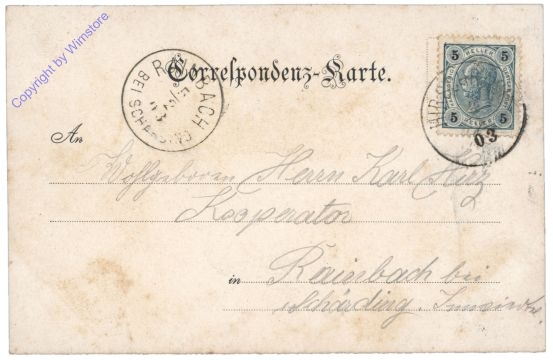 Copyright by Wimstore
RAINBACH
BEI SCHÄRDING
Correspondenz-Karte.
5 HELLER 5
5 HELLER 5
03
An
Wohlgeboren Herrn Karl
Kooperator
in Rainbach bei
Schärding.